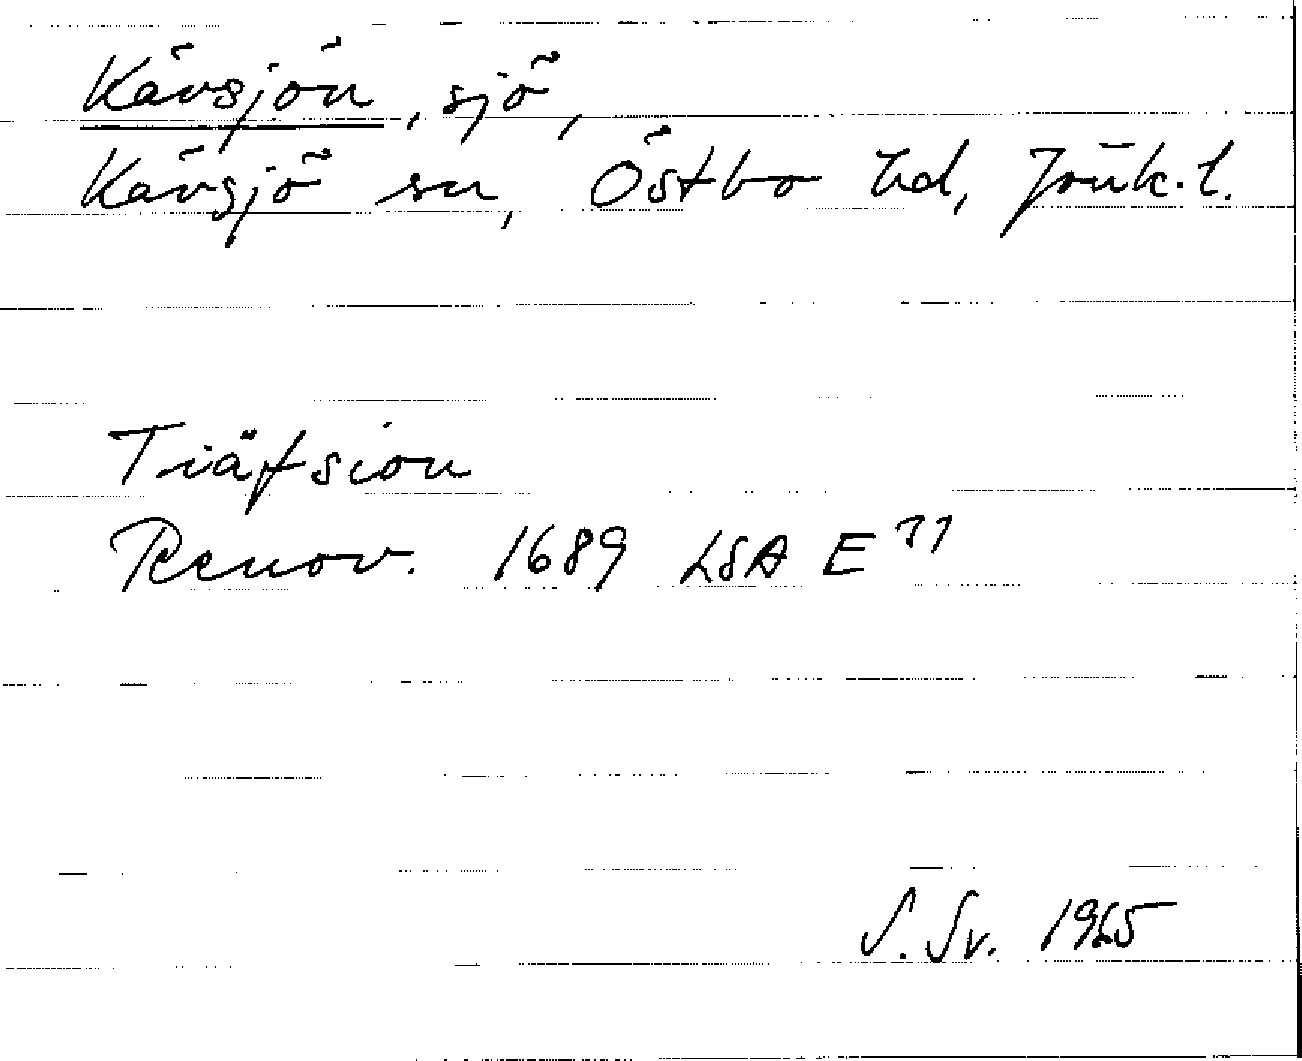 Kävsjön, sjö,
Kävsjö sn, Östbo hd, Jönk. l.
Tiäfsion
Renov. 1689 LSA E 77
S. Sv. 1965